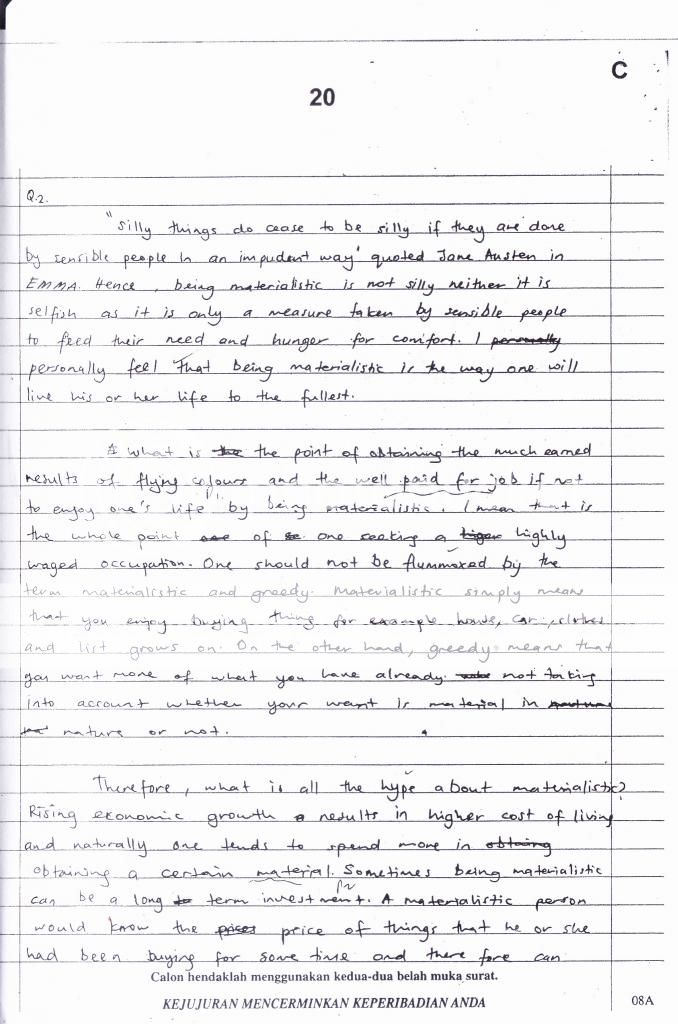 C
20
Q.2.
"Silly things do cease to be silly if they are done
by sensible people in an impudent way' quoted Jane Austen in
EMMA. Hence, being materialistic is not silly neither it is
selfish as it is only a measure taken by sensible people
to feed their need and hunger for comfort. I personally
personally feel that being materialistic is the way one will
live his or her life to the fullest.
What is the the point of obtaining the much earned
results of flying colours and the well paid for job if not
to enjoy one's life by being materialistic. I mean that is
the whole point of one seeking a higer highly
waged occupation. One should not be flummoxed by the
term materialistic and greedy. Materialistic simply means
that you enjoy buying thing for example house, car, clothes
and list grows on. On the other hand, greedy means that
you want more of what you have already not taking
into account whether your want is material in nature
nature or not.
Therefore, what is all the hype about materialistic?
Rising economic growth results in higher cost of living
and naturally one tends to spend more in obtaing
obtaining a certain material. Sometimes being materialistic
can be a long to term investment. A materialistic person
would know the prices price of things that he or she
had been buying for some time and there fore can
Calon hendaklah menggunakan kedua-dua belah muka surat.
KEJUJURAN MENCERMINKAN KEPERIBADIAN ANDA
08A